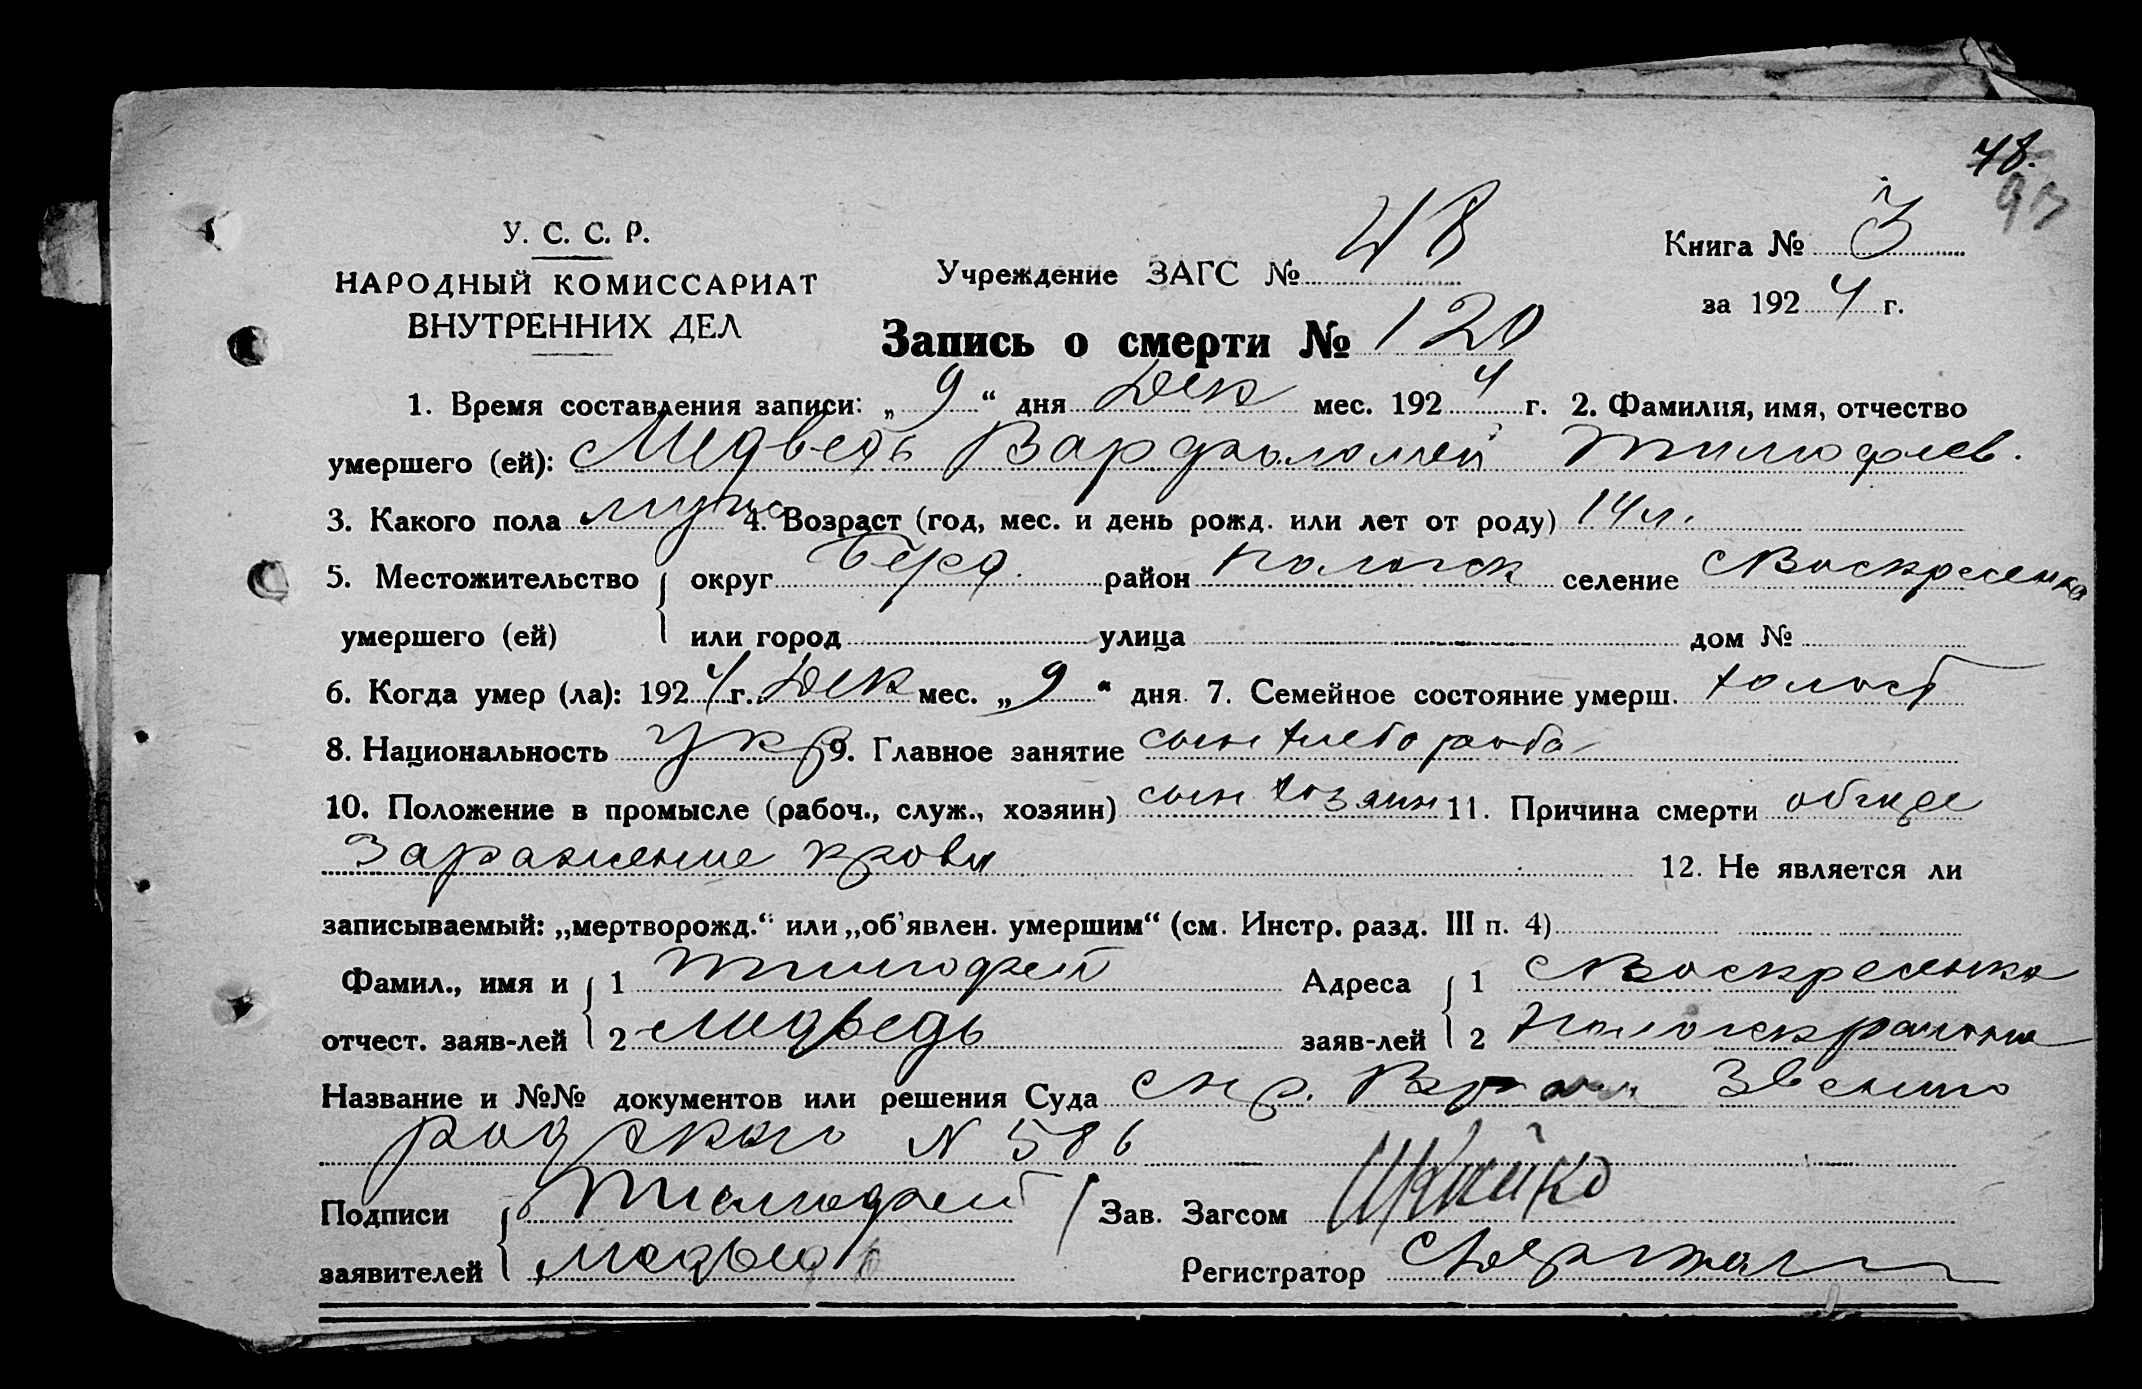 48.
97
У. С. С. Р.
НАРОДНЫЙ КОМИССАРИАТ
ВНУТРЕННИХ ДЕЛ
Учреждение ЗАГС № 48
Книга № 3
за 1924 г.
Запись о смерти № 120
1. Время составления записи: „9“ дня Дек мес. 1924 г. 2. Фамилия, имя, отчество
умершего (ей): Медведь Варфоломей Тимофеев.
3. Какого пола муж 4. Возраст (год, мес. и день рожд. или лет от роду) 14 л.
5. Местожительство округ Берд. район Пологск селение с Воскресенка
умершего (ей) или город улица дом №
6. Когда умер (ла): 1924 г. Дек мес. „9“ дня 7. Семейное состояние умерш. холост
8. Национальность укр 9. Главное занятие сын хлебороба
10. Положение в промысле (рабоч., служ., хозяин) сын хозяин 11. Причина смерти общее
Заражение крови 12. Не является ли
записываемый: „мертворожд.“ или „об'явлен. умершим“ (см. Инстр. разд. III п. 4)
Фамил., имя и 1 Тимофей Адреса 1 с Воскресенка
отчест. заяв-лей 2 Медведь заяв-лей 2 Пологск района
Название и №№ документов или решения Суда Звениго
родского N 586
Подписи Тимофей Зав. Загсом
заявителей Медведь Регистратор